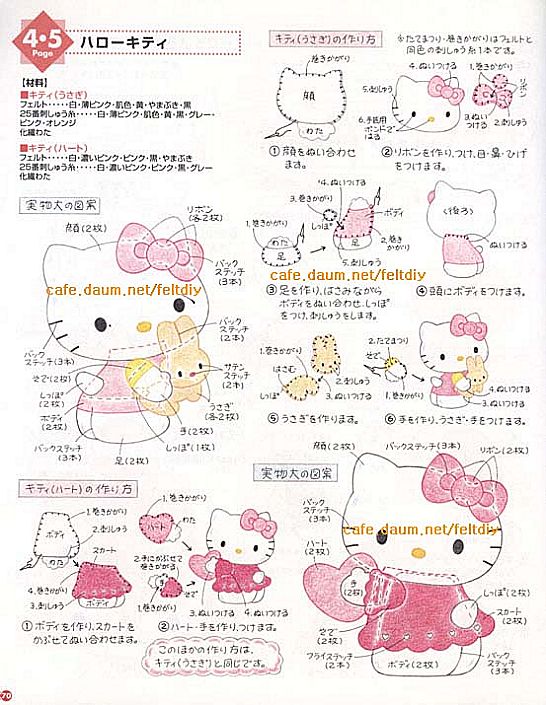 4・5
Page
ハローキティ
【材料】
■キティ(うさぎ)
フェルト・・・・・白・薄ピンク・肌色・黄・やまぶき・黒
25番刺しゅう糸・・・・・白・薄ピンク・肌色・黄・黒・グレー・
ピンク・オレンジ
化繊わた
■キティ(ハート)
フェルト・・・・・白・濃いピンク・ピンク・黒・やまぶき
25番刺しゅう糸・・・・・白・濃いピンク・ピンク・黒・グレー
化繊わた
実物大の図案
顔(2枚)
リボン
(各2枚)
バック
ステッチ
(3本)
cafe.daum.net/feltdiy
バック
ステッチ
(2本)
バック
ステッチ(3本)
そで(2枚)
しっぽ
(2枚)
ボディ
(2枚)
バックステッチ
(3本)
サテン
ステッチ
(2本)
うさぎ
(各2枚)
手(2枚)
しっぽ(1枚)
足(2枚)
キティ(うさぎ)の作り方
※たてまつり・巻きかがりはフェルトと
同色の刺しゅう糸1本です。
巻きかがり
顔
わた
①顔をぬい合わせ
ます。
4.ぬいつける
1.巻きかがり
リボン
5.刺しゅう
6.手芸用
ボンドで
はる
3.ぬい
つける
2.刺しゅう
②リボンを作り、つけ、目・鼻・ひげ
をつけます。
4.ぬいつける
3.巻きかがり
1.巻きかがり
しっぽ
ボディ
わた
足
2.巻き
かがり
足
5.刺しゅう
cafe.daum.net/feltdiy
③足を作り、はさみながら
ボディをぬい合わせ、しっぽ
をつけ、刺しゅうをします。
(後ろ)
ぬいつける
④頭にボディをつけます。
1.巻きかがり
はさむ
しっぽ
2.刺しゅう
3.ぬいつける
⑤うさぎを作ります。
2.たてまつり
そで
手
1.巻きかがり
4.ぬいつける
3.ぬいつける
⑥手を作り、うさぎ・手をつけます。
キティ(ハート)の作り方
1.巻きかがり
ボディ
2.刺しゅう
わた
スカート
4.巻きかがり
3.刺しゅう
ボディ
①ボディを作り、スカートを
かぶせてぬい合わせます。
1.巻きかがり
ハート
わた
2.手にかぶせて
巻きかがる
手
そで
1.巻きかがり
3.ぬいつける
4.ぬいつける
②ハート・手を作り、つけます。
このほかの作り方は、
キティ(うさぎ)と同じです。
実物大の図案
顔(2枚)
バックステッチ(3本)
リボン(2枚)
バック
ステッチ
(3本)
cafe.daum.net/feltdiy
ハート
(2枚)
手
(2枚)
しっぽ
(2枚)
スカート
(2枚)
そで
(2枚)
フライステッチ
(2本)
ボディ(2枚)
バック
ステッチ
(3本)
70